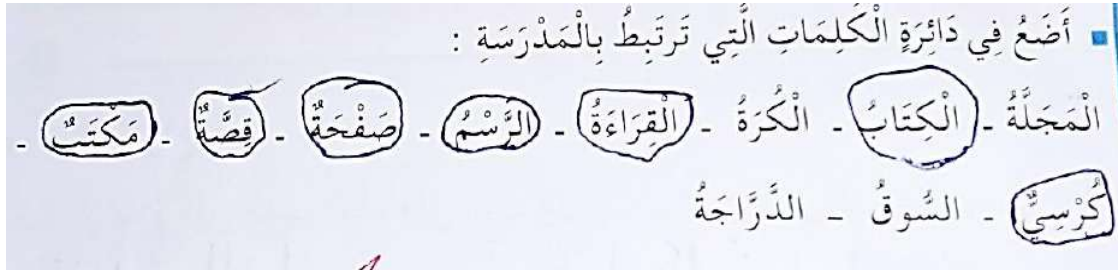 أَضَعُ فِي دَائِرَةٍ الْكَلِمَاتِ الَّتِي تَرْتَبِطُ بِالْمَدْرَسَةِ :
الْمَجَلَّةُ - الْكِتَابُ - الْكُرَةُ - الْقِرَاءَةُ - الرَّسْمُ - صَفْحَةٌ - قِصَّةٌ - مَكْتَبٌ -
كُرْسِيٌّ - السُّوقُ - الدَّرَّاجَةُ